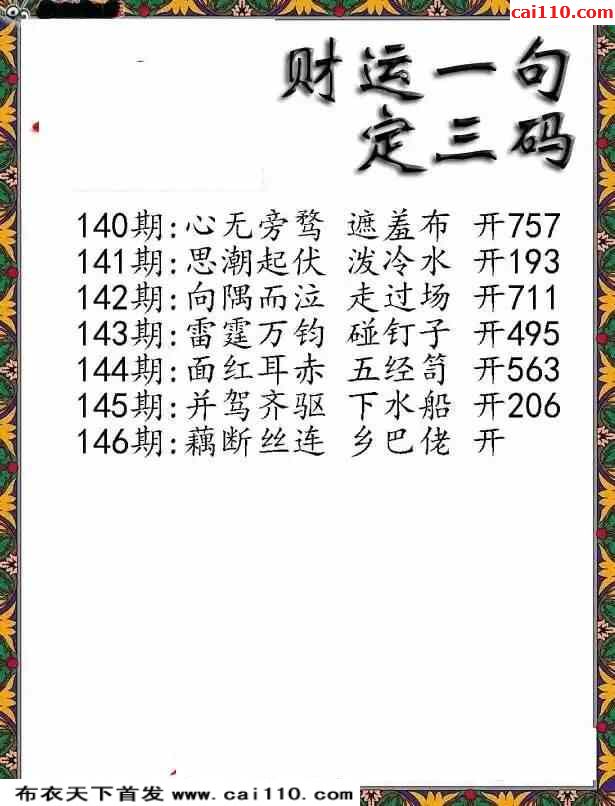 cai110.com
财运一句
定三码
140期:心无旁骛 遮羞布 开757
141期:思潮起伏 泼冷水 开193
142期:向隅而泣 走过场 开711
143期:雷霆万钧 碰钉子 开495
144期:面红耳赤 五经笥 开563
145期:并驾齐驱 下水船 开206
146期:藕断丝连 乡巴佬 开
布衣天下首发 www.cai110.com